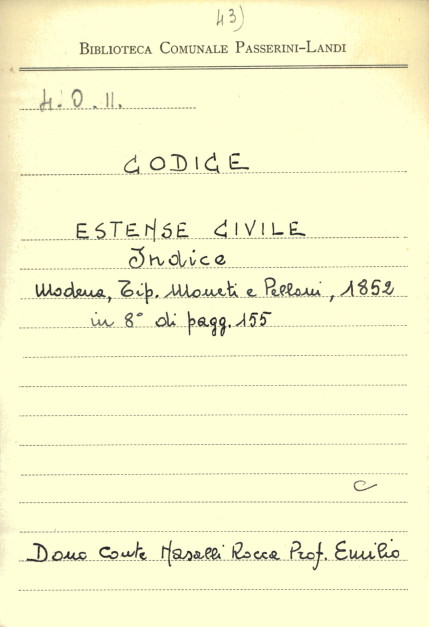 43)
BIBLIOTECA COMUNALE PASSERINI-LANDI
4. O. 11.
CODICE
ESTENSE CIVILE
Indice
Modena, Tip. Moneti e Pelloni, 1852
in 8° di pagg. 155
C
Dono Conte Nasalli Rocca Prof. Emilio